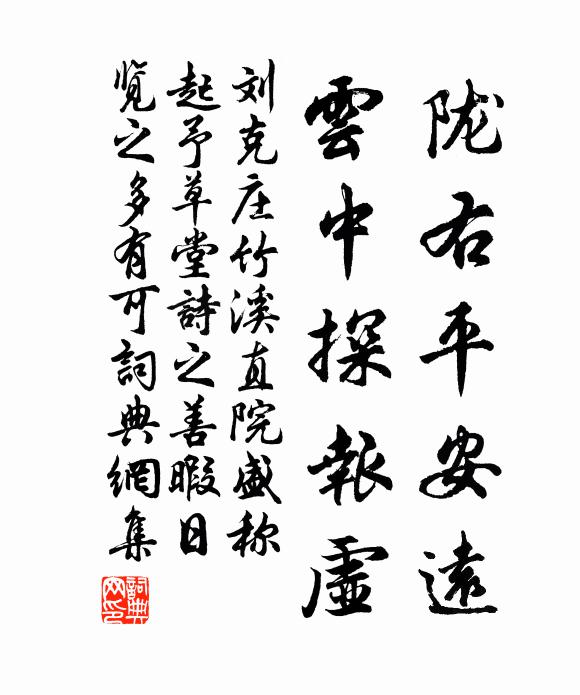 陇右平安遠
雲中探報虛
刘克庄竹溪直院盛称
起予草堂詩之善暇日
览之多有可詞典網集
詞典網印